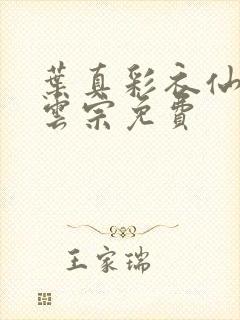 葉真彩衣仙
雲宗免費
王家瑞